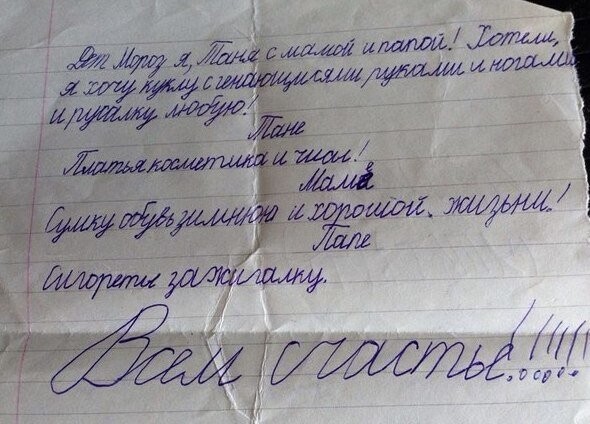 Дет Мороз я, Таня с мамой и папой! Хотели,
я хочу куклу с генающимися руками и ногами
и русалку любую!
Тане
Платья косметика и чиас!
Маме
Сумку обувь зимнюю и хорошой. жизьни!
Папе
Сигореты зажигалку.
Всем счастье!!!!!!